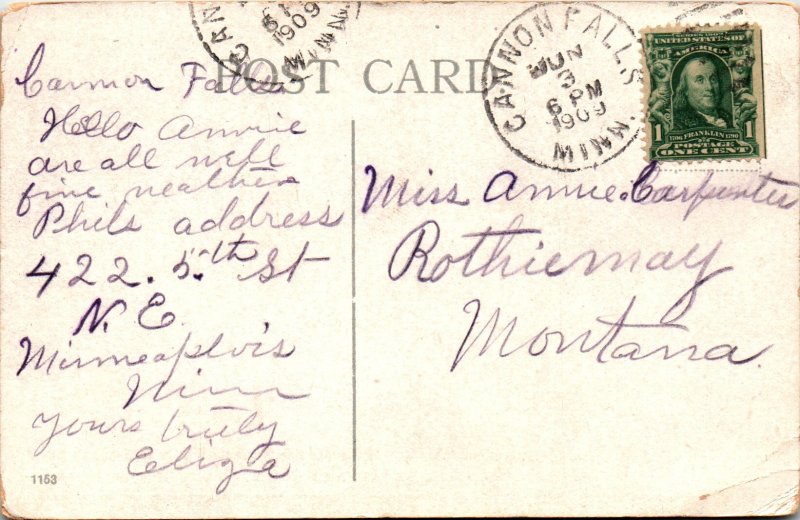 POST CARD
CANNON FALLS
MINN.
1909
CANNON FALLS
MINN.
JUN
3
6 PM
1909
UNITED STATES OF
AMERICA
1706 FRANKLIN 1790
1 1
POSTAGE
ONE CENT
Cannon Falls
Hello Annie
are all well
fine weather
Phils address
422. 5th St
N. E.
Minneaplois
Minn
yours truly
Eliza
1153
Miss Annie Carpenter
Rothiemay
Montana.